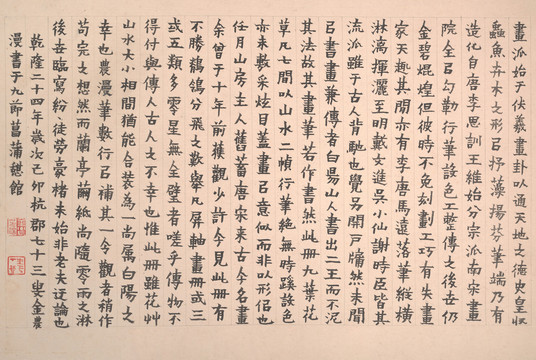 畫派始于伏羲畫卦以通天地之德史皇收
蟲魚卉木之形以抒藻揚芬筆端乃有
造化自唐李思訓王維始分宗派南宋畫
院全以勾勒行筆設色工整傳之後去仍
金碧焜煌但彼時不免刻劃工巧有失畫
家天趣其間亦有李唐馬遠落筆縱橫
淋漓揮灑至明戴文進吳小仙謝時臣皆其
流派雖于古人背馳也覺另開戶牖然未聞
以書畫兼傳者白陽山人書出二王而不泥
其法故其畫筆若作書然此冊九葉花
草凡七間以山水二幀行筆絕無時蹊設色
亦未敷采炫目蓋畫以意似而非以形侣也
任月山房主人舊蓄唐宋来古今名畫
余曾于十年前獲觀少許今見此冊有
不勝鶺鴒分飛之歎舉凡屏軸畫冊或三
或五類多零星無全璧者嗟乎傳物不
得付與傳人古人之不幸也惟此冊雖花艸
山水大小相間猶能合裝為一尚属白陽之
幸也農漫筆數行以補其一令觀者稍作
苟完之想然而蘭亭繭紙尚隨零雨之淋
後去臨寫紛紛徒勞豪楮未始非老夫迂論也
乾隆二十四年歲次己卯杭郡七十三叟金農
漫書于九節菖蒲憇館